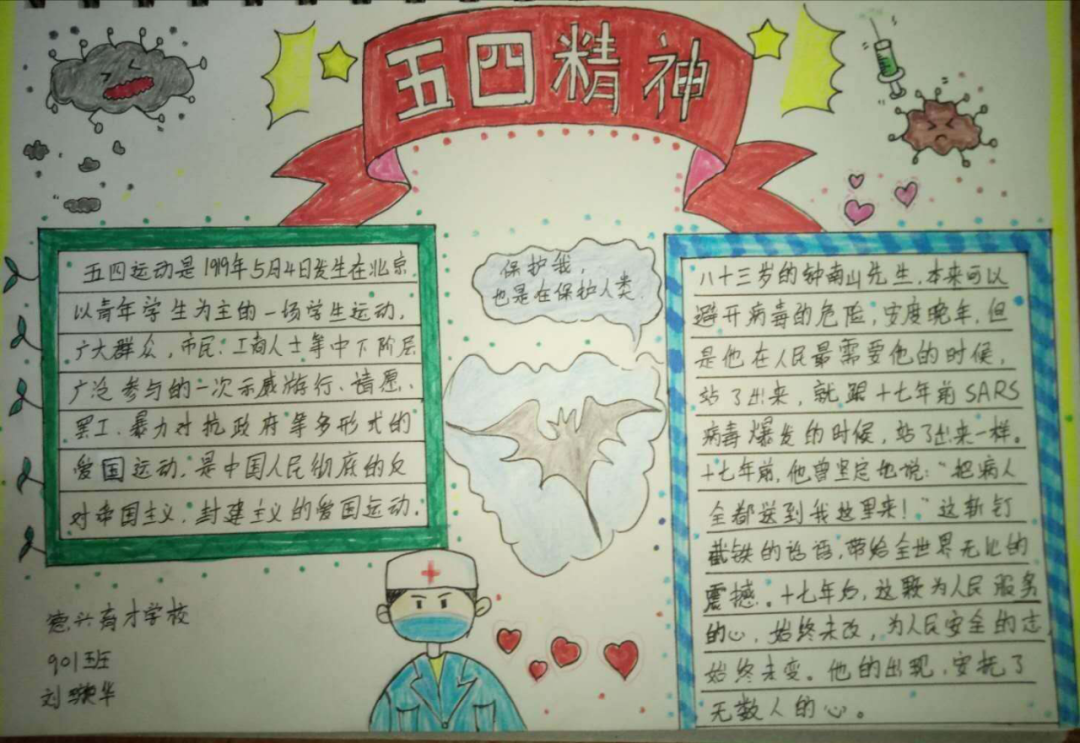 五四精神
五四运动是1919年5月4日发生在北京
以青年学生为主的一场学生运动，
广大群众，市民、工商人士等中下阶层
广泛参与的一次示威游行、请愿、
罢工、暴力对抗政府等多形式的
爱国运动，是中国人民彻底的反
对帝国主义，封建主义的爱国运动。
保护我，
也是在保护人类
八十三岁的钟南山先生，本来可以
避开病毒的危险，安度晚年，但
是他在人民最需要他的时候，
站了出来，就跟十七年前SARS
病毒爆发的时候，站了出来一样。
十七年前，他曾坚定地说："把病人
全都送到我这里来！"这斩钉
截铁的话语，带给全世界无比的
震撼。十七年后，这颗为人民服务
的心，始终未改，为人民安全的志
始终未变。他的出现，安抚了
无数人的心。
德兴育才学校
901班
刘 华